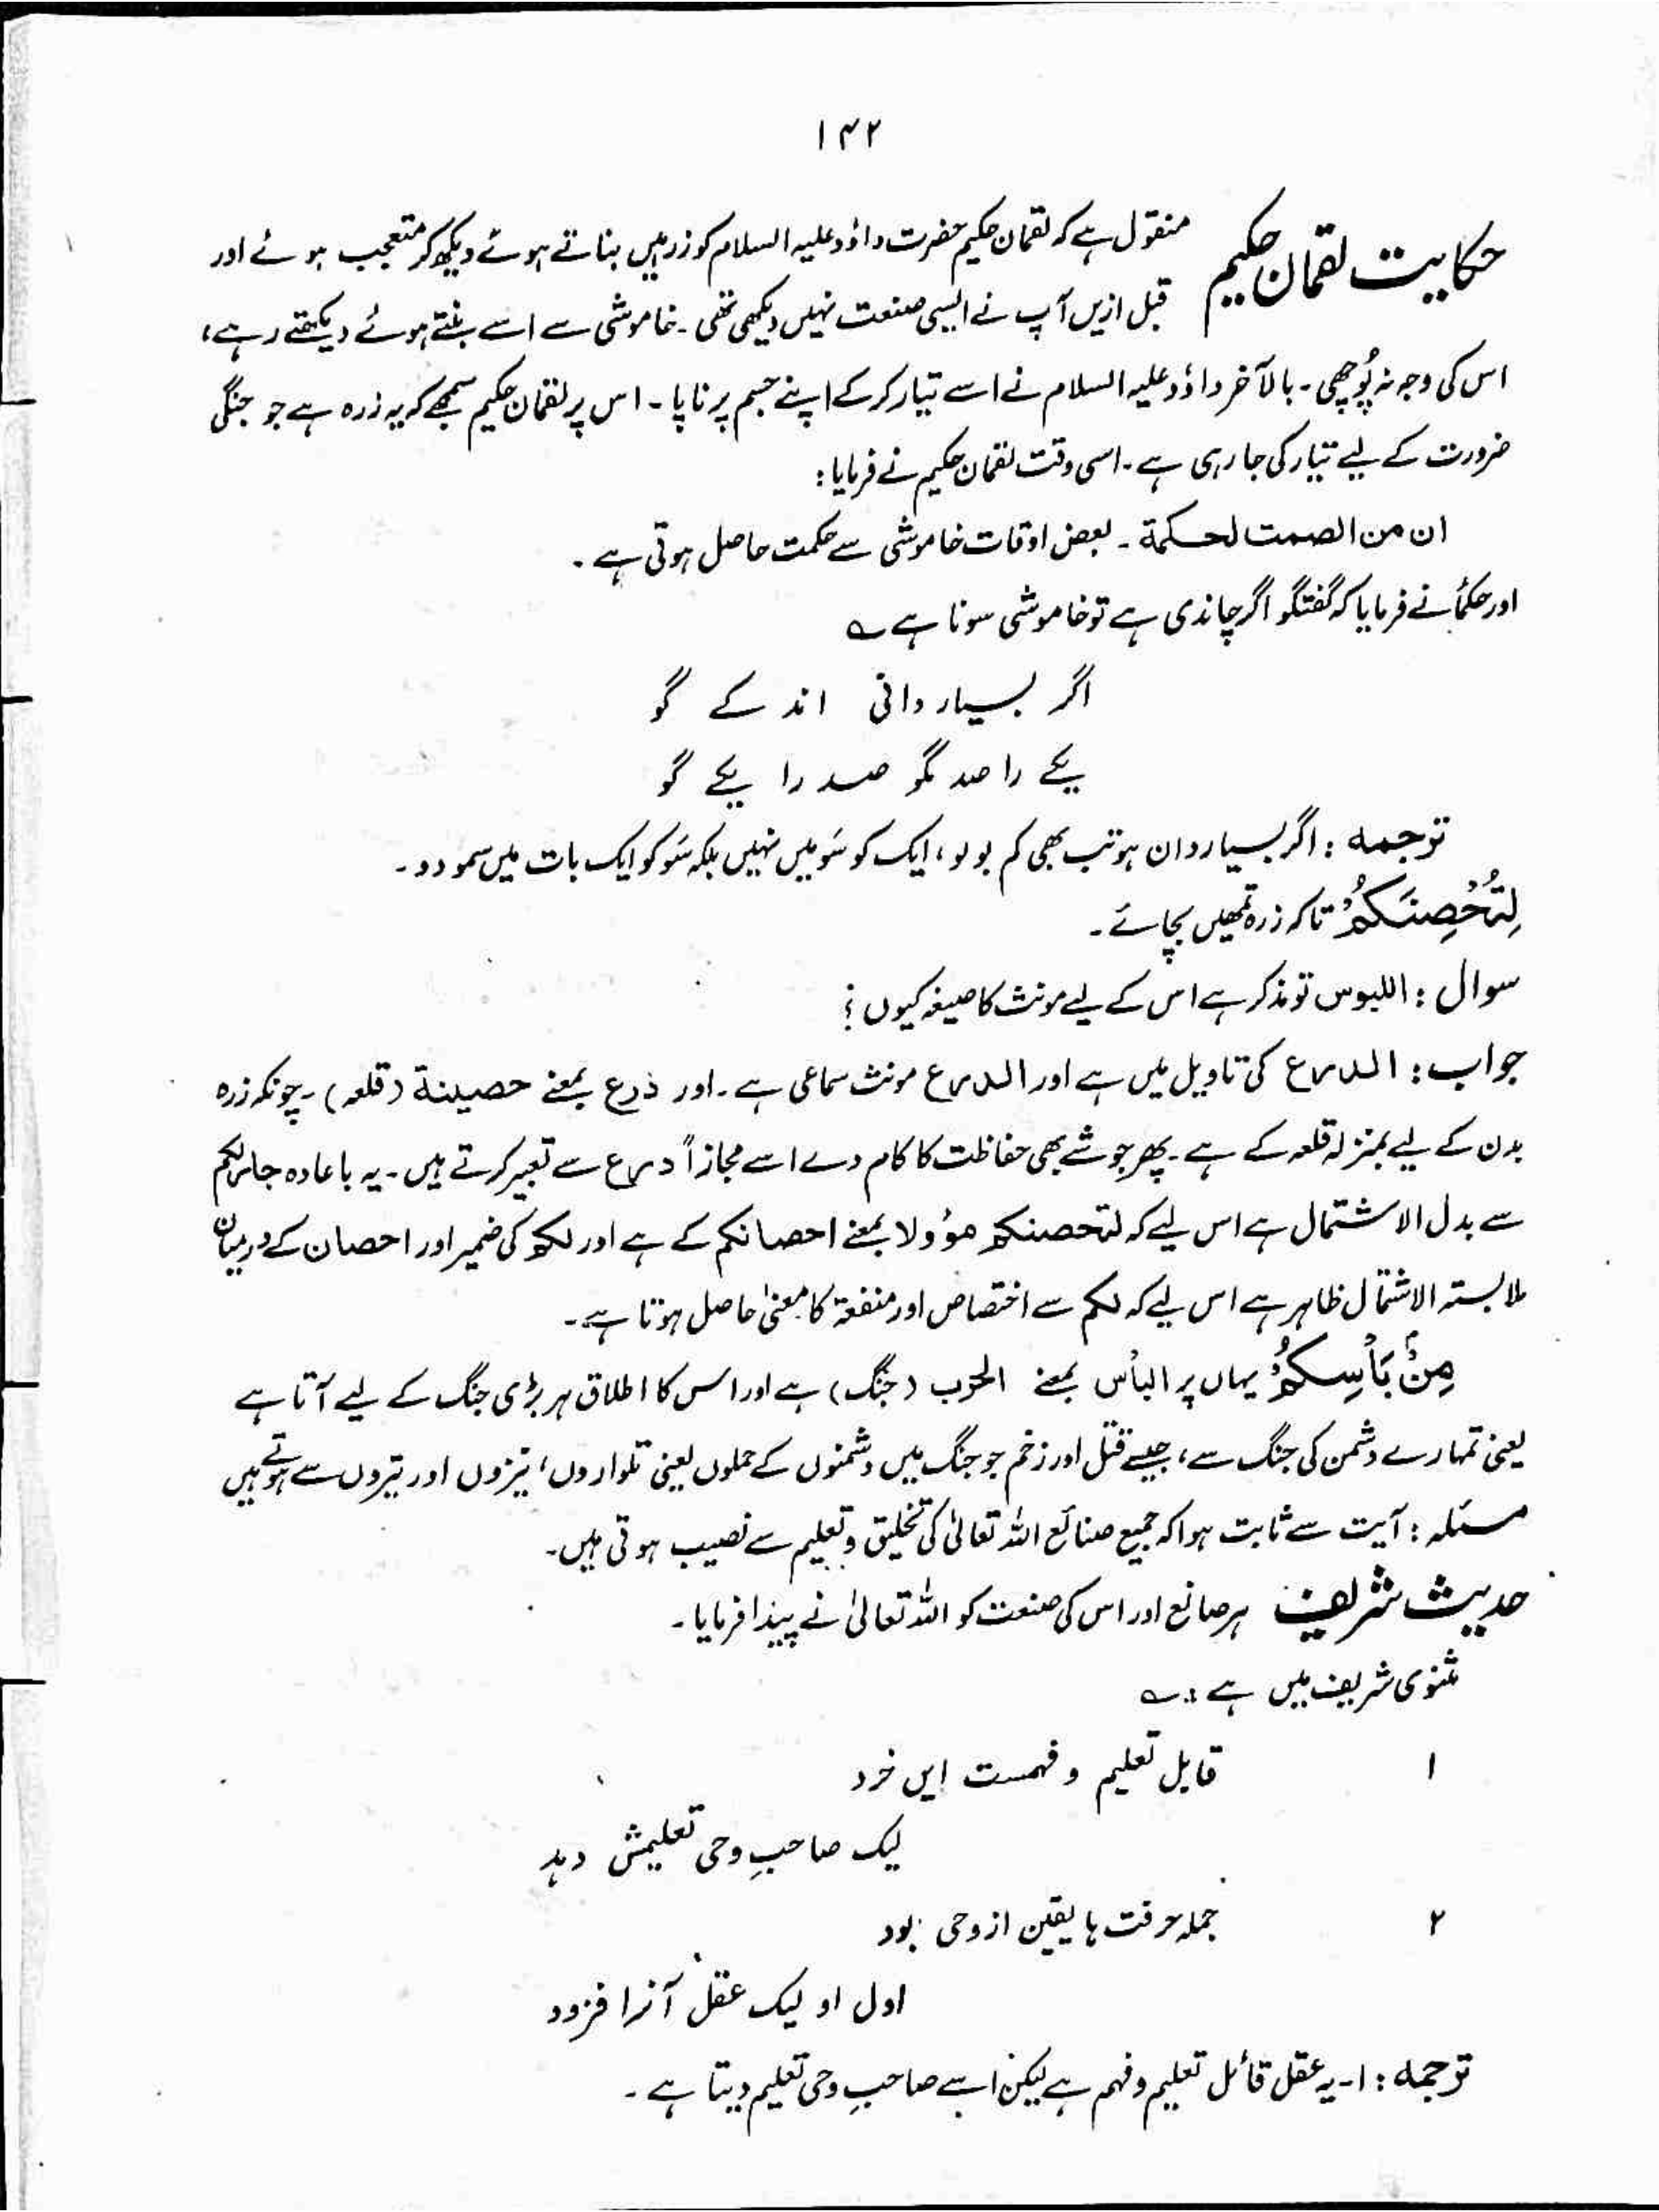 ۱۴۲
حکایت لقمان حکیم منقول ہے کہ لقمان حکیم حضرت داؤد علیہ السلام کو زرہیں بناتے ہوئے دیکھ کر متعجب ہوئے اور
قبل ازیں آپ نے ایسی صنعت نہیں دیکھی تھی۔ خاموشی سے اسے بنتے ہوئے دیکھتے رہے،
اس کی وجہ نہ پُوچھی۔ بالآخر داؤد علیہ السلام نے اسے تیار کر کے اپنے جسم پر ناپا۔ اس پر لقمان حکیم سمجھے کہ یہ زرہ ہے جو جنگی
ضرورت کے لیے تیار کی جا رہی ہے۔ اسی وقت لقمان حکیم نے فرمایا:
ان من الصمت لحکمۃ۔ بعض اوقات خاموشی سے حکمت حاصل ہوتی ہے۔
اور حکمأ نے فرمایا کہ گفتگو اگر چاندی ہے تو خاموشی سونا ہے ؎
اگر بسیار دانی اند کے گو
یکے را صد مگو صد را یکے گو
توجمہ: اگر بسیار دان ہو تب بھی کم بولو، ایک کو سَو میں نہیں بلکہ سَو کو ایک بات میں سمو دو۔
لِتُحْصِنَكُمْ تاکہ زرہ تمھیں بچائے۔
سوال: اللبوس تو مذکر ہے اس کے لیے مونث کا صیغہ کیوں؟
جواب: الدرع کی تاویل میں ہے اور الدرع مونث سماعی ہے۔ اور ذرع بمعنے حصینۃ (قلعہ)۔ چونکہ زرہ
بدن کے لیے بمنزلہ قلعہ کے ہے۔ پھر جو شے بھی حفاظت کا کام دے اسے مجازاً درع سے تعبیر کرتے ہیں۔ یہ باعادہ جار لکم
سے بدل الاشتمال ہے اس لیے کہ لتحصنکم مؤولا بمعنے احصانکم کے ہے اور لکم کی ضمیر اور احصان کے درمیان
ملابستہ الاشتمال ظاہر ہے اس لیے کہ لکم سے اختصاص اور منفعۃ کا معنیٰ حاصل ہوتا ہے۔
مِنْۢ بَاْسِكُمْ یہاں پر البأس بمعنے الحرب (جنگ) ہے اور اس کا اطلاق ہر بڑی جنگ کے لیے آتا ہے
یعنی تمہارے دشمن کی جنگ سے، جیسے قتل اور زخم جو جنگ میں دشمنوں کے حملوں یعنی تلواروں، نیزوں اور تیروں سے ہوتے ہیں
مسئلہ: آیت سے ثابت ہوا کہ جمیع صنائع اللہ تعالیٰ کی تخلیق و تعلیم سے نصیب ہوتی ہیں۔
حدیث شریف ہر صانع اور اس کی صنعت کو اللہ تعالیٰ نے پیدا فرمایا۔
مثنوی شریف میں ہے: ؎
۱ قابل تعلیم و فہمست این خرد
لیک صاحبِ وحی تعلیمش دہد
۲ جملہ حرفت ہا یقین از وحی بود
اول او لیک عقل آنرا فزود
توجمہ: ۱۔ یہ عقل قائل تعلیم و فہم ہے لیکن اسے صاحبِ وحی تعلیم دیتا ہے۔